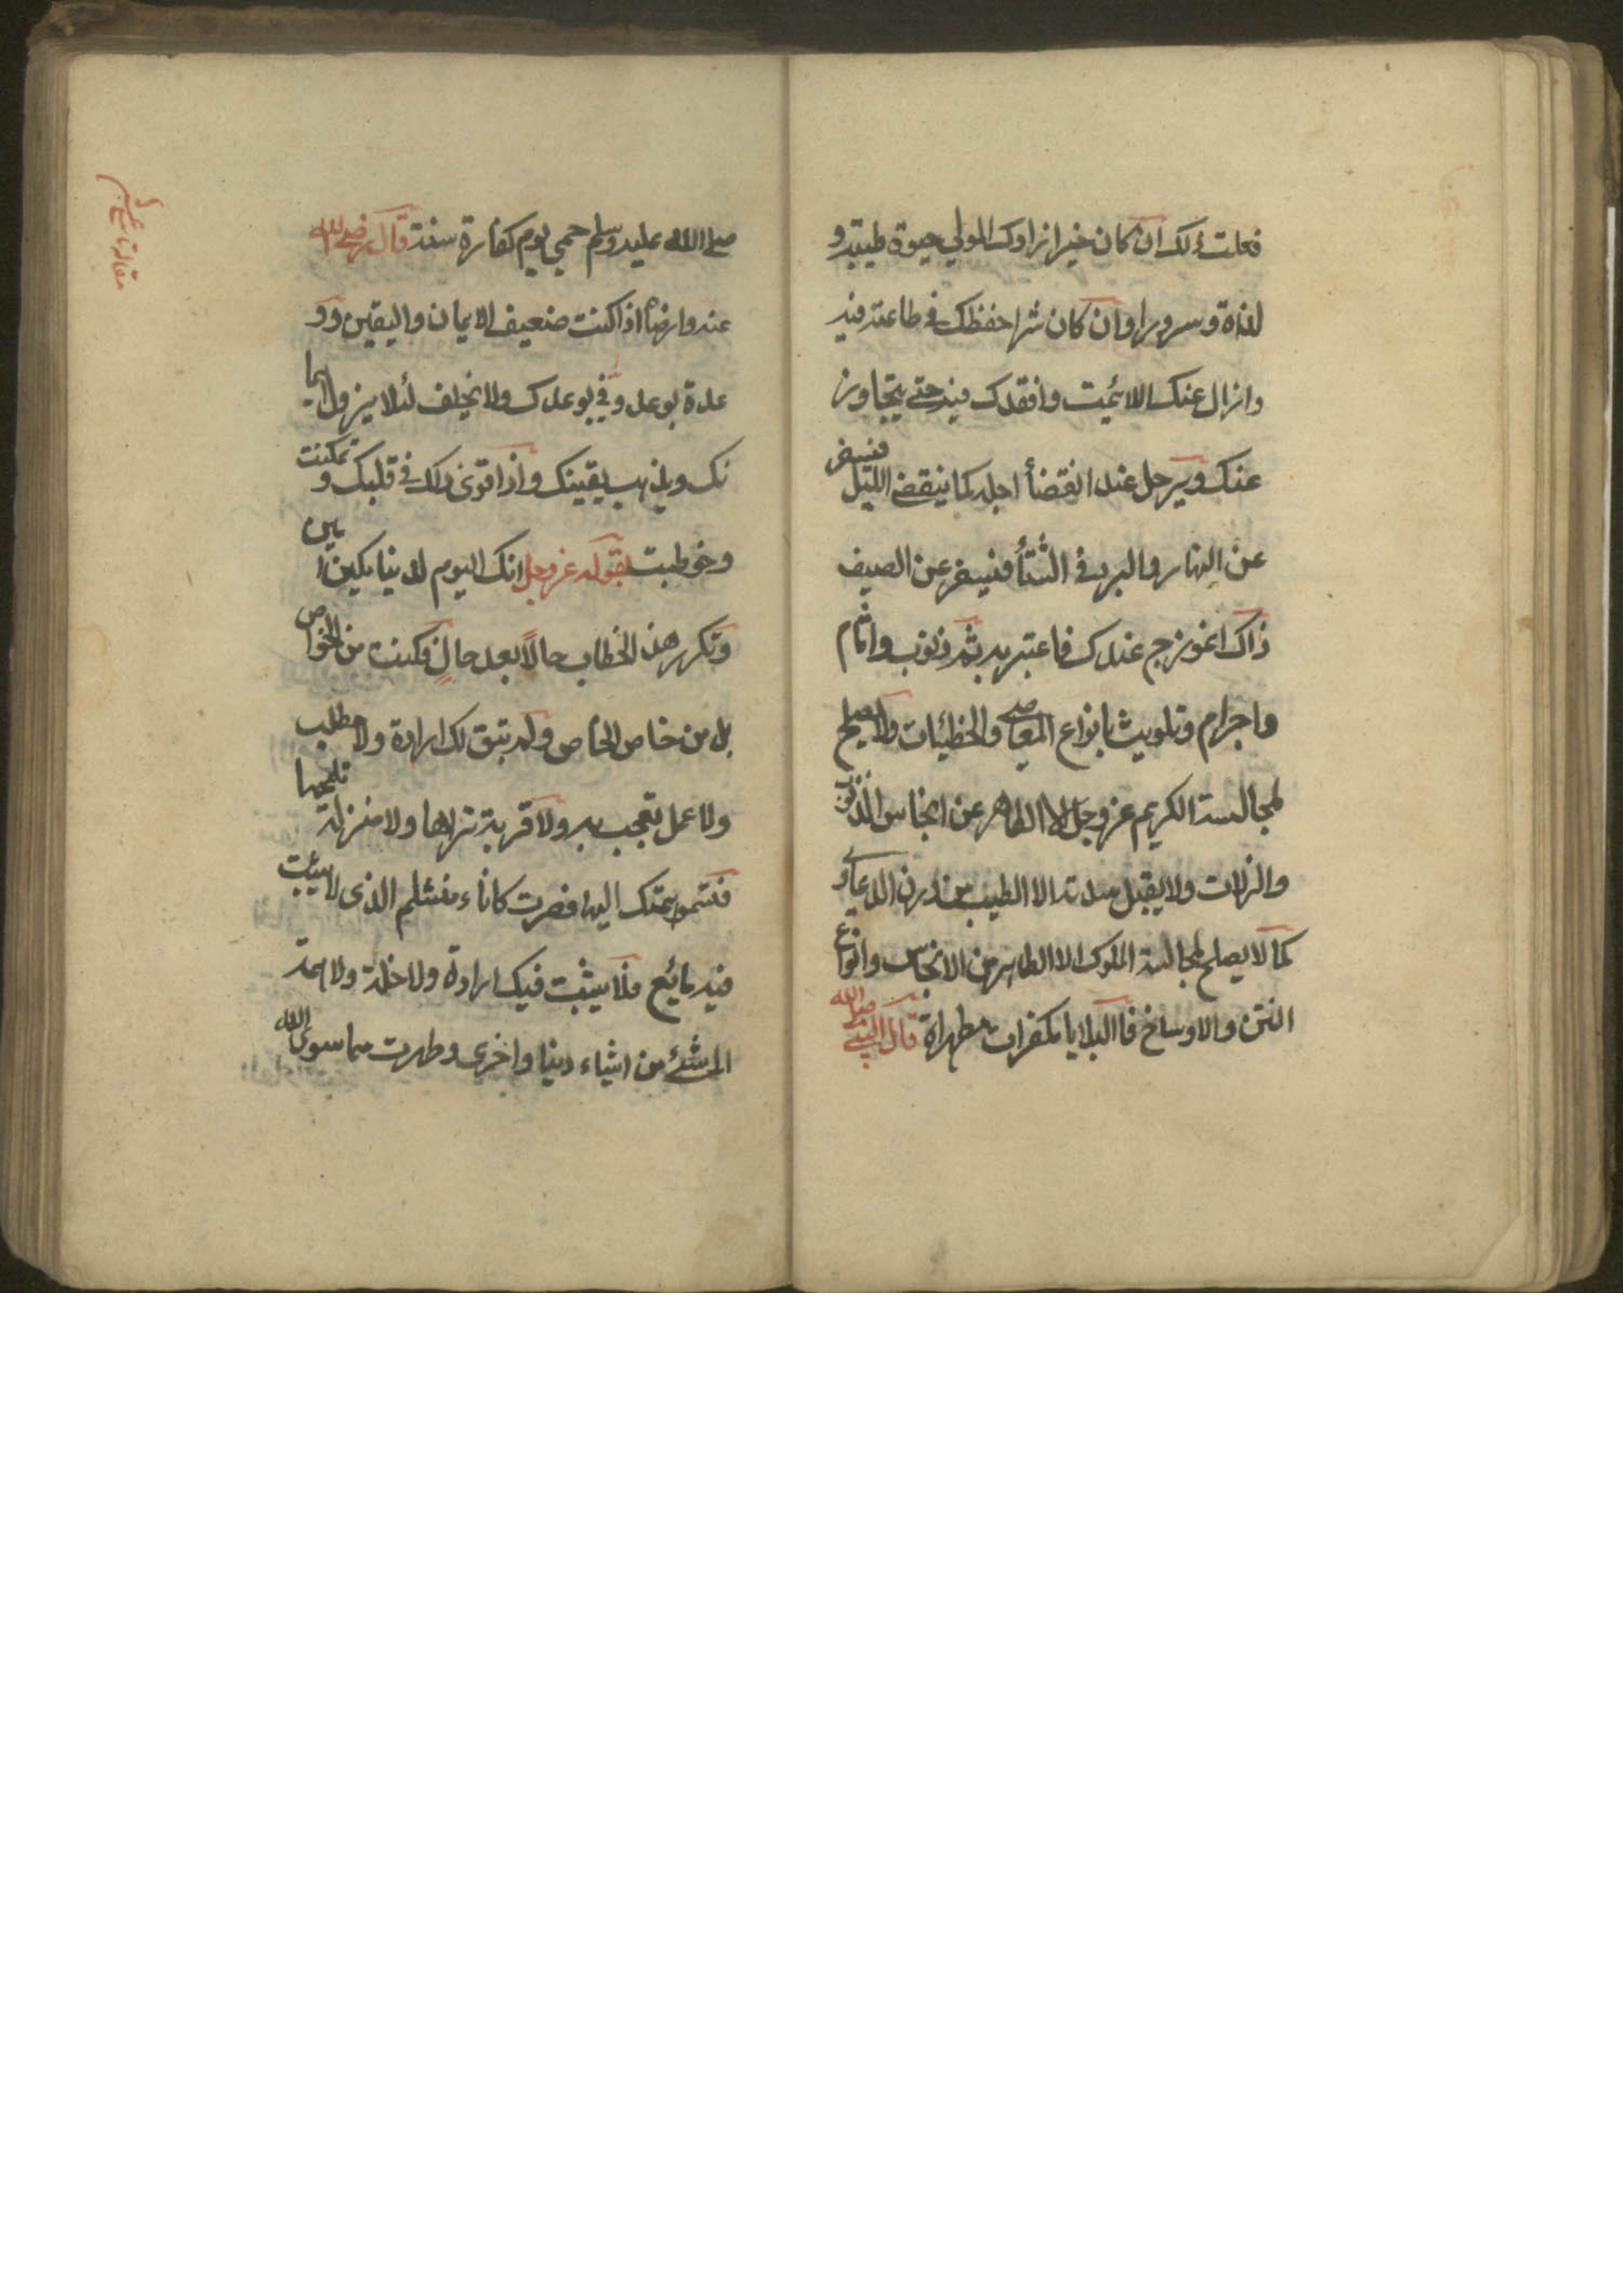 فعلت ذلك ان كان خيرا زادك المولي حيوة طيبة و
لذة وسرورا وان كان شرا حفظك في طاعته فيه
وازال عنك اللائمة وافقدك فيه حتي يتجاوز
عنك ويرحل عند انقضأ اجله كما ينقضي الليل فيسفر
عن النهار والبرد في الشتأ فيسفر عن الصيف
ذاك انموزج عندك فاعتبر به ثم ذنوب واثام
واجرام وتلويث بانواع المعاصي والخطيئات ولا يصلح
لمجالسة الكريم عزوجل الا الطاهر عن انجاس الذنوب
والزلات ولا يقبل سدته الا الطيب من درن الدعاوي
كما لا يصلح لمجالسة الملوك الا الطاهر من الانجاس وانواع
النتن والاوساخ فاالبلايا مكفرات مطهراة قال النبي صلي الله
صلي الله عليه وسلم حمي يوم كفارة سنة قال رضي الله
عنه وارضاه اذا كنت ضعيف الايمان واليقين وو
عدة بوعد وفي بوعدك ولا يخلف لئلا يزول ايما
نك ويذهب يقينك واذا قوي ذلك في قلبك و تمكنت
وخوطبت بقوله عزوجل انك اليوم لدينا مكين امين
وتكرر هذ الخطاب حالاً بعد حالٍ فكنت من الخواص
بل من خاص الخاص ولم تبق لك ارادة ولا مطلب
ولا عمل تعجب به ولا قربة تراها ولا منزلة تلمحها
فتسموا همتك اليها فصرت كاناء منثلم الذي لا يثبت
فيه مايع فلا يثبت فيك ارادة ولا خلة ولا همة
الي شئ من اشياء دنيا واخري وطهرت مما سوي الله